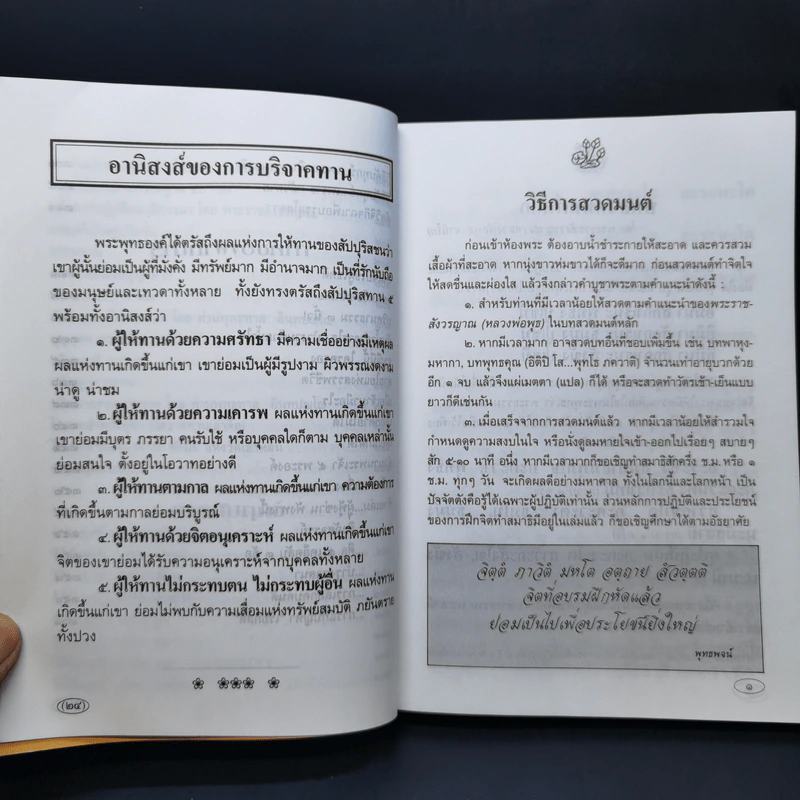 อานิสงส์ของการบริจาคทาน
พระพุทธองค์ได้ตรัสถึงผลแห่งการให้ทานของสัปปุริสชนว่า
เขาผู้นั้นย่อมเป็นผู้ที่มั่งคั่ง มีทรัพย์มาก มีอำนาจมาก เป็นที่รักนับถือ
ของมนุษย์และเทวดาทั้งหลาย ทั้งยังทรงตรัสถึงสัปปุริสทาน ๕
พร้อมทั้งอานิสงส์ว่า
๑. ผู้ให้ทานด้วยความศรัทธา มีความเชื่ออย่างมีเหตุผล
ผลแห่งทานเกิดขึ้นแก่เขา เขาย่อมเป็นผู้มีรูปงาม ผิวพรรณงดงาม
น่าดู น่าชม
๒. ผู้ให้ทานด้วยความเคารพ ผลแห่งทานเกิดขึ้นแก่เขา
เขาย่อมมีบุตร ภรรยา คนรับใช้ หรือบุคคลใดก็ตาม บุคคลเหล่านั้น
ย่อมสนใจ ตั้งอยู่ในโอวาทอย่างดี
๓. ผู้ให้ทานตามกาล ผลแห่งทานเกิดขึ้นแก่เขา ความต้องการ
ที่เกิดขึ้นตามกาลย่อมบริบูรณ์
๔. ผู้ให้ทานด้วยจิตอนุเคราะห์ ผลแห่งทานเกิดขึ้นแก่เขา
จิตของเขาย่อมได้รับความอนุเคราะห์จากบุคคลทั้งหลาย
๕. ผู้ให้ทานไม่กระทบตน ไม่กระทบผู้อื่น ผลแห่งทาน
เกิดขึ้นแก่เขา ย่อมไม่พบกับความเสื่อมแห่งทรัพย์สมบัติ ภยันตราย
ทั้งปวง
(๒๔)
วิธีการสวดมนต์
ก่อนเข้าห้องพระ ต้องอาบน้ำชำระกายให้สะอาด และควรสวม
เสื้อผ้าที่สะอาด หากนุ่งขาวห่มขาวได้ก็จะดีมาก ก่อนสวดมนต์ทำจิตใจ
ให้สดชื่นและผ่องใส แล้วจึงกล่าวคำบูชาพระตามคำแนะนำดังนี้ :
๑. สำหรับท่านที่มีเวลาน้อยให้สวดตามคำแนะนำของพระราช-
สังวรญาณ (หลวงพ่อพุธ) ในบทสวดมนต์หลัก
๒. หากมีเวลามาก อาจสวดบทอื่นที่ชอบเพิ่มขึ้น เช่น บทพาหุง-
มหากา, บทพุทธคุณ (อิติปิ โส...พุทโธ ภควาติ) จำนวนเท่าอายุบวกด้วย
อีก ๑ จบ แล้วจึงแผ่เมตตา (แปล) ก็ได้ หรือจะสวดทำวัตรเช้า-เย็นแบบ
ยาวก็ดีเช่นกัน
๓. เมื่อเสร็จจากการสวดมนต์แล้ว หากมีเวลาน้อยให้สำรวมใจ
กำหนดดูความสงบในใจ หรือนั่งดูลมหายใจเข้า-ออกไปเรื่อยๆ สบายๆ
สัก ๕-๑๐ นาที อนึ่ง หากมีเวลามากก็ขอเชิญทำสมาธิสักครึ่ง ช.ม. หรือ ๑
ช.ม. ทุกๆ วัน จะเกิดผลดีอย่างมหาศาล ทั้งในโลกนี้และโลกหน้า เป็น
ปัจจัตตังคือรู้ได้เฉพาะผู้ปฏิบัติเท่านั้น ส่วนหลักการปฏิบัติและประโยชน์
ของการฝึกจิตทำสมาธิมีอยู่ในเล่มแล้ว ก็ขอเชิญศึกษาได้ตามอัธยาศัย
จิตฺตํ ภาวิตํ มหโต อตฺถาย สํวตฺตติ
จิตที่อบรมฝึกหัดแล้ว
ย่อมเป็นไปเพื่อประโยชน์ยิ่งใหญ่
พุทธพจน์
๑